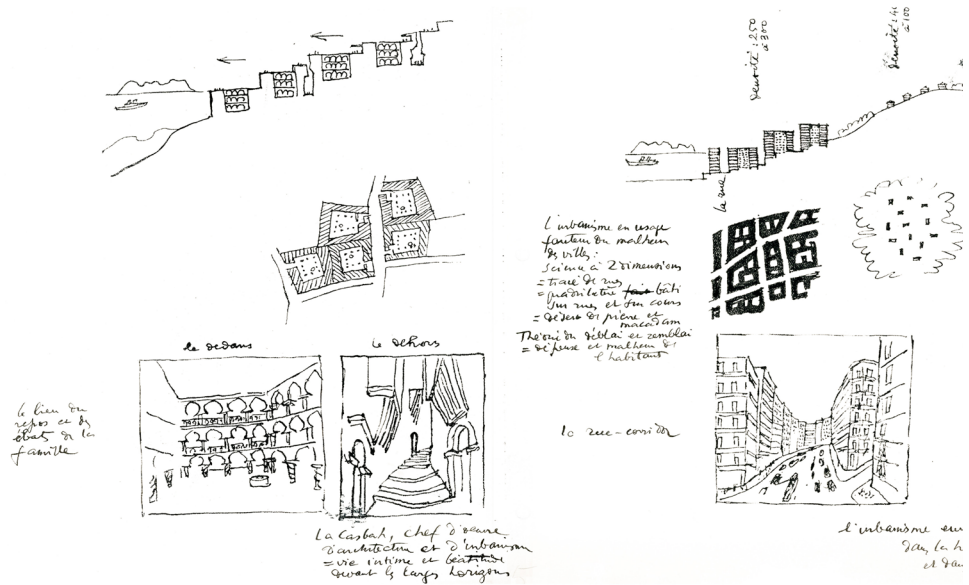 le dedans
le dehors
le lieu du
repos et des
ébats de la
famille
La Casbah, chef d'œuvre
d'architecture et d'urbanisme
= vie intime et béatitude
devant les larges horizons
densité : 250
à 300
densité : 40
à 100
la rue
L'urbanisme en usage
fauteur du malheur
des villes :
Science à 2 dimensions
= tracé de rues
= quadrilatère fait bâti
sur rues et sur cours
= désert de pierre et
macadam
Théorie du déblai et remblai
= dépense et malheur de
l'habitant
la rue-corridor
l'urbanisme
dans les
et